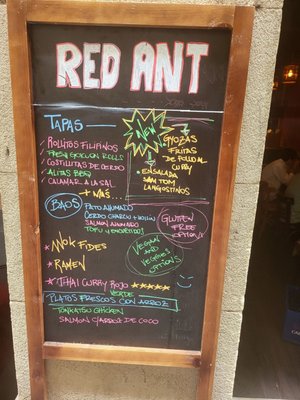 RED ANT
TAPAS
/ ROLLITOS FILIPINOS
/ FRESH GOI CUON ROLLS
/ COSTILLITAS DE CERDO
/ ALITAS BBQ
/ CALAMAR A LA SAL
+ MAS...
NEW!
• GYOZAS
FRITAS
DE POLLO AL
CURRY
• ENSALADA
SAN TOM
LANGOSTINOS
BAOS
PATO AHUMADO
CERDO CHARSIU +
SALMON AHUMADO
TOFU Y
GLUTEN
FREE
OPTIONS
VEGAN
AND
VEGGIE
OPTIONS
★ WOK FIDEOS
★ RAMEN
★ THAI CURRY ROJO ★★★★★
VERDE
PLATOS FRESCOS CON ARROZ
TONKATSU CHICKEN
SALMON C/ARROZ DE COCO